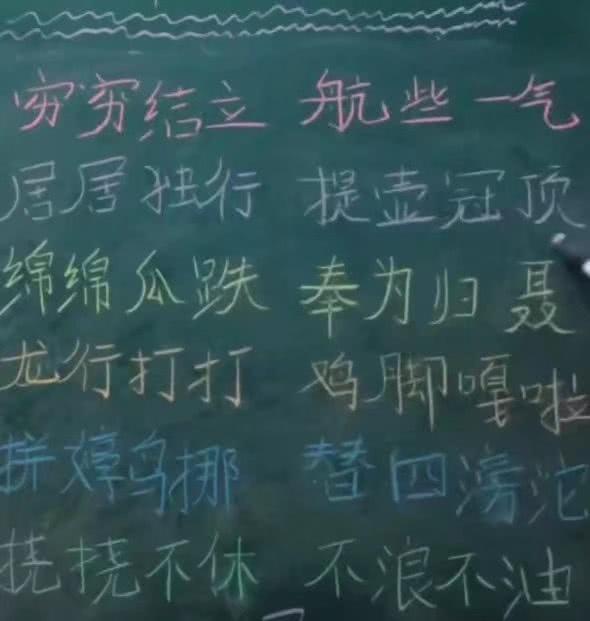 穷穷结立 航些一气
居居独行 提壶冠顶
绵绵瓜跌 奉为归聂
龙行打打 鸡脚嘎啦
拼嫜鸟挪 替四滂沱
挠挠不休 不浪不油